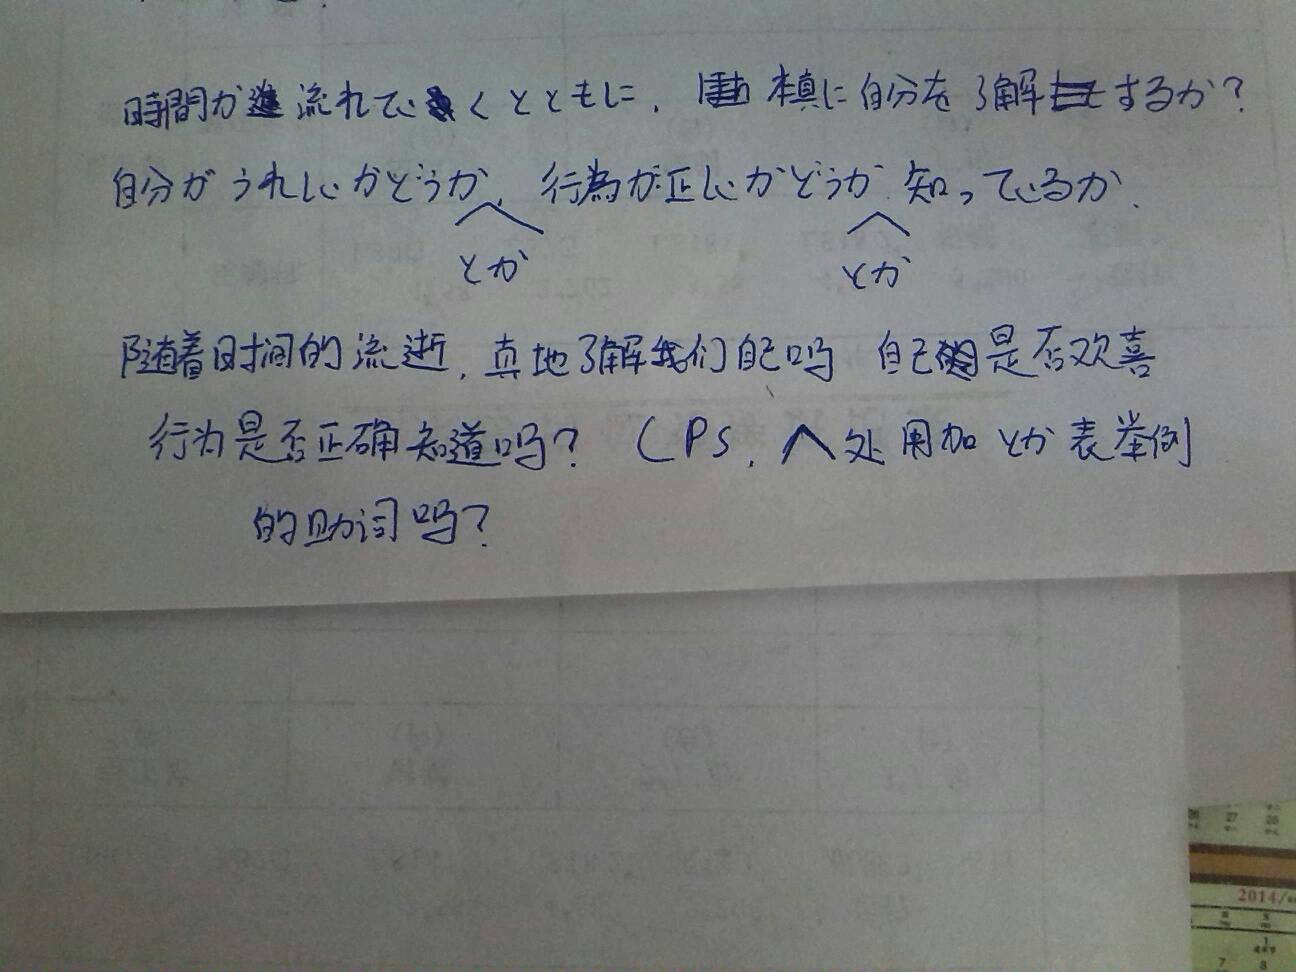 時間が流れていくとともに、本真に自分を了解するか?
自分がうれしいかどうか、行為が正しいかどうか知っているか、
とか とか
随着时间的流逝,真地了解我们自己吗 自己是否欢喜
行为是否正确知道吗?(PS,へ处用加とか表举例
的助词吗?
27 28
2014/
1
7 8